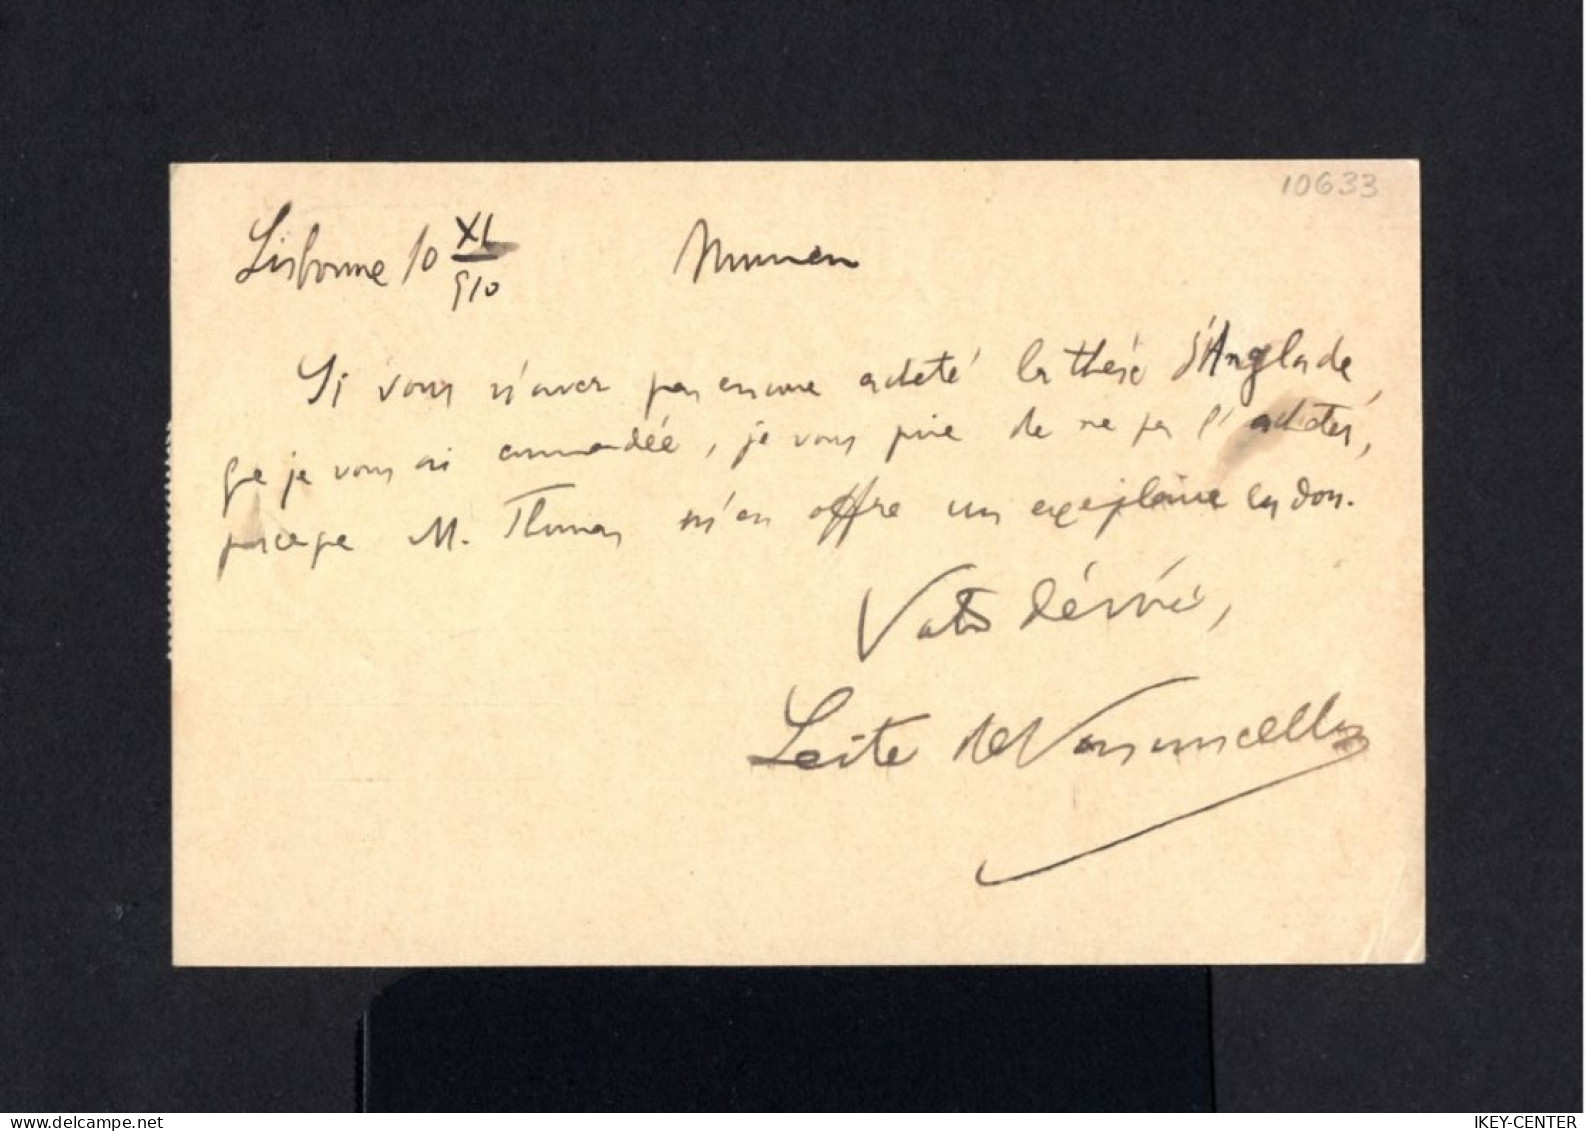 10633
Lisbonne 10 XI/910 Monsieur
Si vous n'avez pas encore acheté la thèse d'Anglade,
que je vous ai commandée, je vous prie de ne pas l'acheter,
parceque M. Thomas m'en offre un exemplaire en don.
Votre dévoué,
Leite de Vasconcellos
www.delcampe.net
IKEY-CENTER